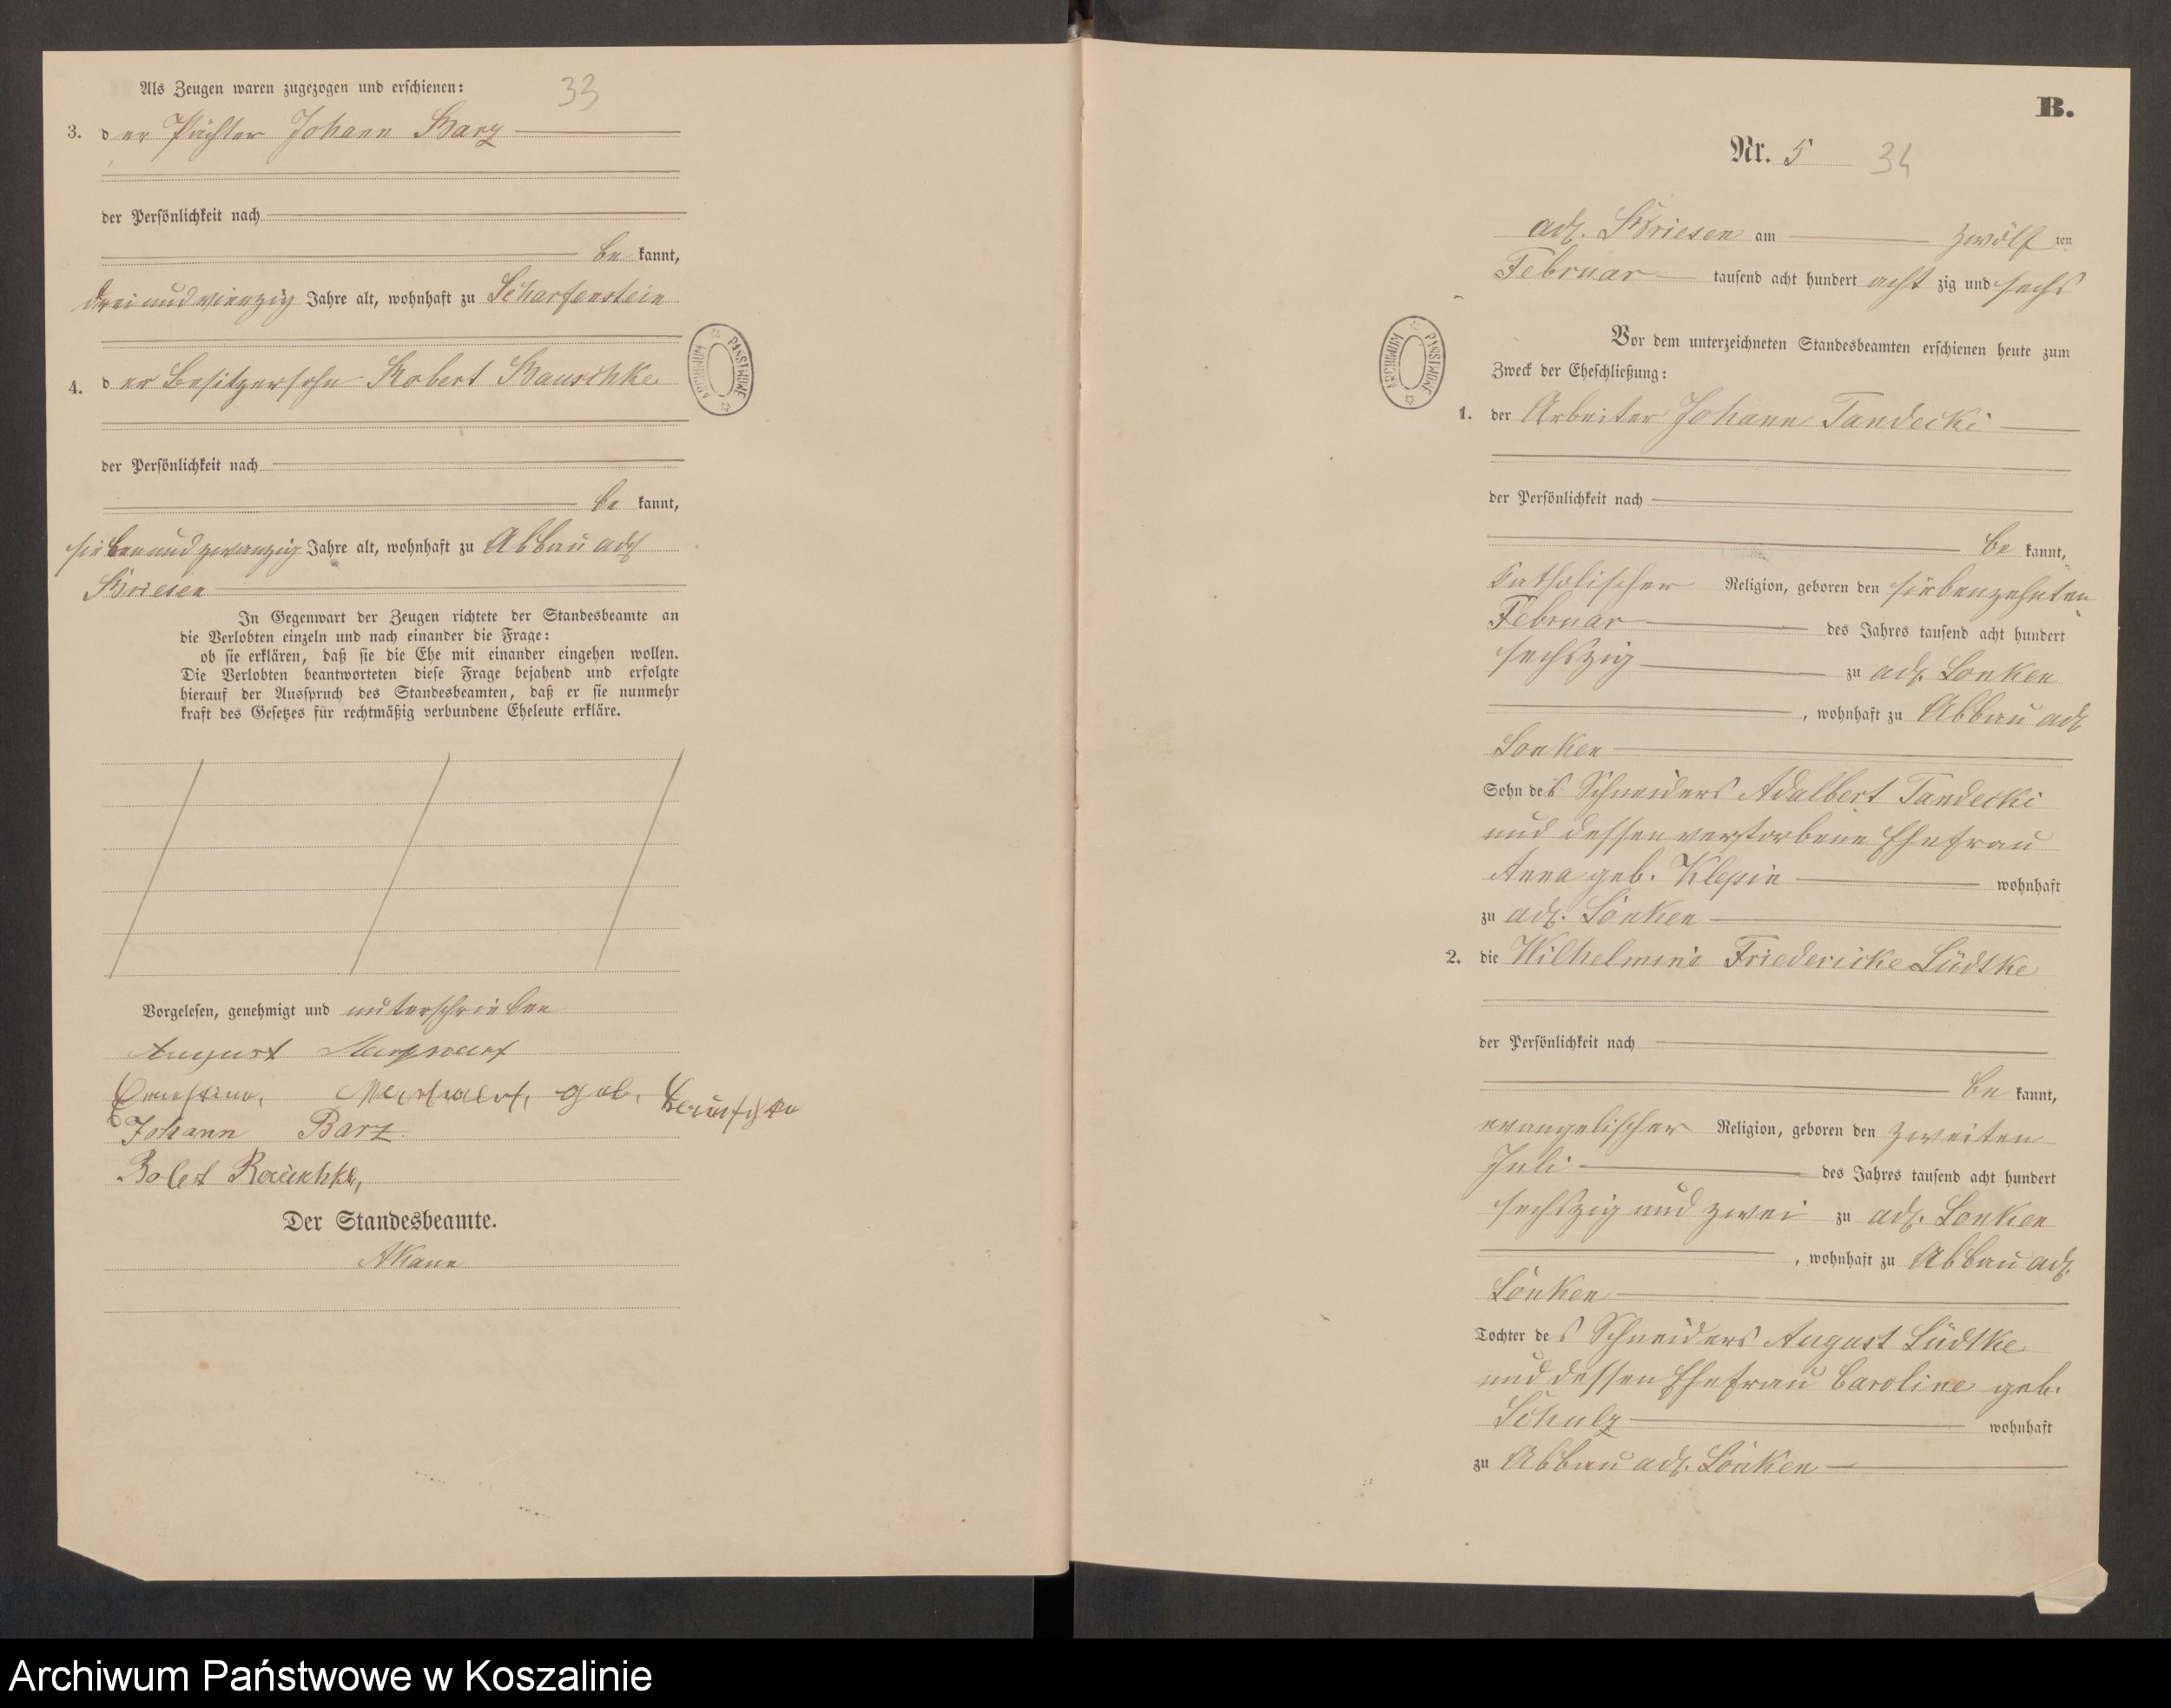 33
Als Zeugen waren zugezogen und erschienen:
3. der Pächter Johann Barz
der Persönlichkeit nach
be kannt,
drei und vierzig Jahre alt, wohnhaft zu Scharfenstein
4. der Besitzersohn Robert Rauschke
der Persönlichkeit nach
be kannt,
sieben und zwanzig Jahre alt, wohnhaft zu Abbau adl
Briesen
In Gegenwart der Zeugen richtete der Standesbeamte an
die Verlobten einzeln und nach einander die Frage:
ob sie erklären, daß sie die Ehe mit einander eingehen wollen.
Die Verlobten beantworteten diese Frage bejahend und erfolgte
hierauf der Ausspruch des Standesbeamten, daß er sie nunmehr
kraft des Gesetzes für rechtmäßig verbundene Eheleute erkläre.
Vorgelesen, genehmigt und unterschrieben
August
Ernstine geb.
Johann Barz
Robert Rauschke,
Der Standesbeamte.
ARCHIWUM PAŃSTWOWE
B.
Nr. 5 34
adl. Briesen am zwölf ten
Februar tausend acht hundert acht zig und sechs
Vor dem unterzeichneten Standesbeamten erschienen heute zum
Zweck der Eheschließung:
1. der Arbeiter Johann Tandecki
der Persönlichkeit nach
be kannt,
katholischer Religion, geboren den siebenzehnten
Februar des Jahres tausend acht hundert
sechszig zu adl. Lonken
, wohnhaft zu Abbau adl
Lonken
Sohn des Schneiders Adalbert Tandecki
und dessen verstorbene Ehefrau
Anna geb. Klepin wohnhaft
zu adl. Lonken
2. die Wilhelmine Friedericke Lüdtke
der Persönlichkeit nach
be kannt,
evangelischer Religion, geboren den zweiten
Juli des Jahres tausend acht hundert
sechszig und zwei zu adl. Lonken
, wohnhaft zu Abbau adl.
Lonken
Tochter des Schneiders August Lüdtke
und dessen Ehefrau Caroline geb.
Schulz wohnhaft
zu Abbau adl. Lonken
ARCHIWUM PAŃSTWOWE
Archiwum Państwowe w Koszalinie